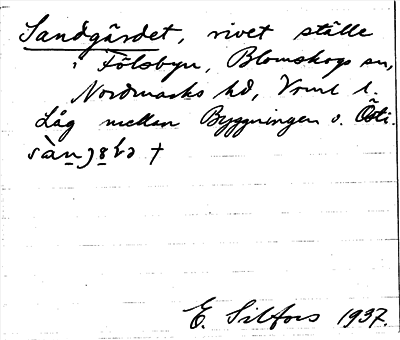 Sandgärdet, rivet ställe
i Fölsbyn, Blomskogs sn,
Nordmarks hd, Vrml l.
Låg mellan Byggningen o. Östi.
E. Silfors 1937.